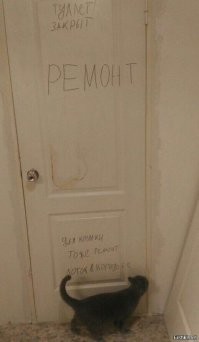 ТУАЛЕТ
ЗАКРЫТ
РЕМОНТ
ДЛЯ КОШКИ
ТОЖЕ РЕМОНТ